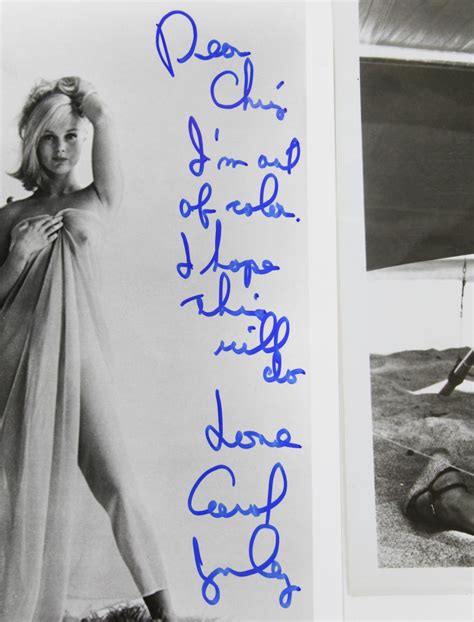 Dear
Chris
I'm out
of color.
I hope
This
will
do
Love
Carol
Lynley